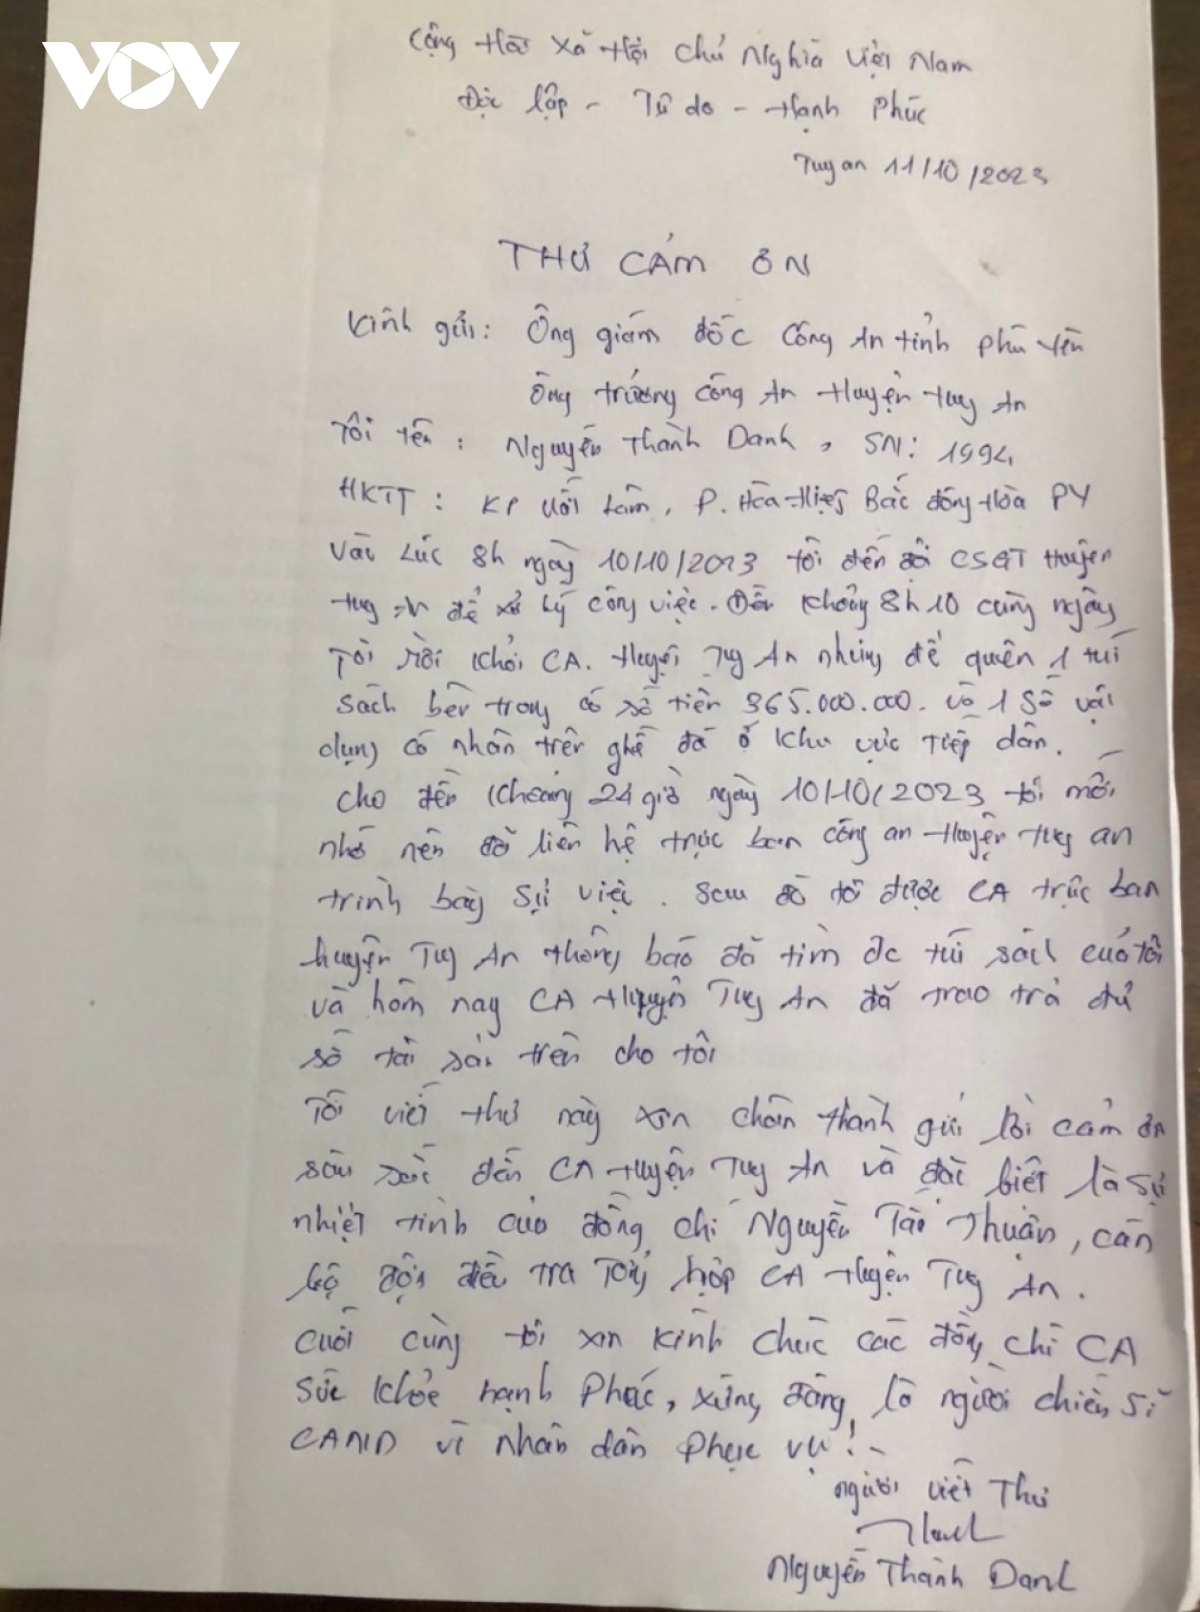 VOV
Cộng Hòa Xã Hội Chủ Nghĩa Việt Nam
Độc lập - Tự do - Hạnh Phúc
Tuy an 11/10/2023
THƯ CẢM ƠN
Kính gửi: Ông giám đốc Công An tỉnh Phú Yên
Ông trưởng công An Huyện Tuy An
Tôi tên : Nguyễn Thành Danh, SN: 1994
HKTT : KP Uất Lâm, P. Hòa Hiệp Bắc Đông Hòa PY
Vào Lúc 8h ngày 10/10/2023 tôi đến đội CSGT Huyện
Tuy An để xử lý công việc. Đến khoảng 8h10 cùng ngày
Tôi rời khỏi CA. Huyện Tuy An nhưng để quên 1 túi
sách bên trong có số tiền 365.000.000. và 1 số vật
dụng cá nhân trên ghế đá ở khu vực tiếp dân.
cho đến khoảng 24 giờ ngày 10/10/2023 tôi mới
nhớ nên đã liên hệ trực ban công an Huyện Tuy an
trình bày sự việc. Sau đó tôi được CA trực ban
huyện Tuy An thông báo đã tìm đc túi sách của tôi
và hôm nay CA Huyện Tuy An đã trao trả đủ
số tài sản trên cho tôi
Tôi viết thư này xin chân thành gửi lời cảm ơn
sâu sắc đến CA Huyện Tuy An và đặc biệt là sự
nhiệt tình của đồng chí Nguyễn Tấn Thuận, cán
bộ đội điều tra Tổng hợp CA Huyện Tuy An.
Cuối cùng tôi xin kính chúc các đồng chí CA
sức khỏe hạnh Phúc, xứng đáng là người chiến sĩ
CAND vì nhân dân phục vụ!-
người viết Thư
Nguyễn Thành Danh